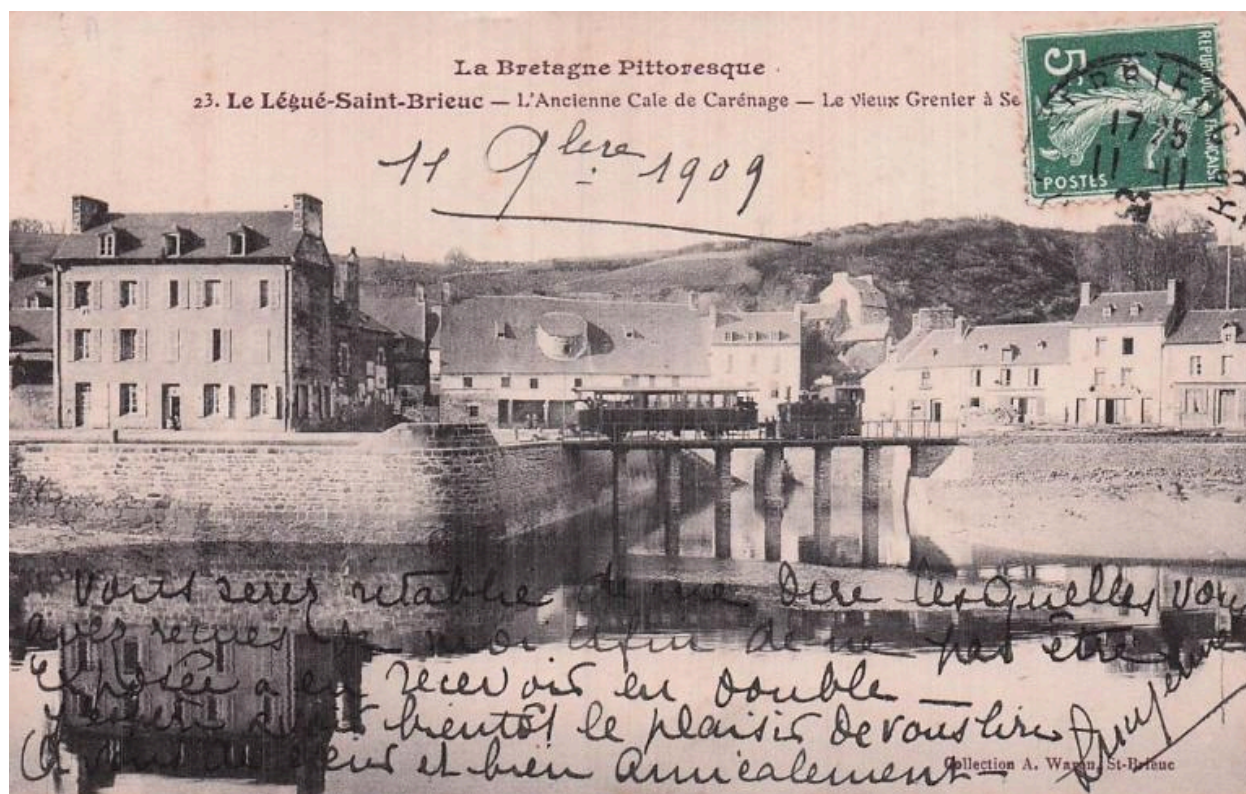 La Bretagne Pittoresque
23. Le Légué-Saint-Brieuc — L'Ancienne Cale de Carénage — Le vieux Grenier à Se
5c
REPUBLIQUE FRANÇAISE
POSTES
17 15
11 -11
11 9bre 1909
vous serez rétablie de me dire lesquelles vous
avez reçues de moi afin de ne pas être
Exposée a en recevoir en double —
avoir bientôt le plaisir de vous lire
et bien Amicalement —
Collection A. Waron, St-Brieuc